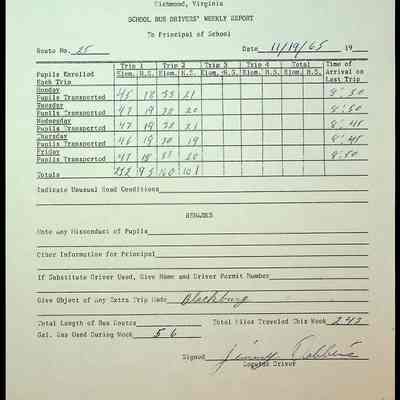 Richmond, Virginia
SCHOOL BUS DRIVERS' WEEKLY REPORT
To Principal of School
Route No. 25 Date 11/19/65 19
Trip 1 Trip 2 Trip 3 Trip 4 Total Time of Arrival on Last Trip
Pupils Enrolled Each Trip Elem. H.S. Elem. H.S. Elem. H.S. Elem. H.S. Elem. H.S.
Monday
Pupils Transported 45 18 21 8:50
Tuesday
Pupils Transported 47 19 20 8:50
Wednesday
Pupils Transported 47 19 21 8:45
Thursday
Pupils Transported 46 19 30 19 8:45
Friday
Pupils Transported 47 18 20 8:50
Totals 232 93 160 101
Indicate Unusual Road Conditions
REMARKS
Note Any Misconduct of Pupils
Other Information for Principal
If Substitute Driver Used, Give Name and Driver Permit Number
Give Object of Any Extra Trip Made Blacksburg
Total Length of Bus Routes Total Miles Traveled This Week 243
Gal. Gas Used During Week 56
Signed Jimmy
Driver